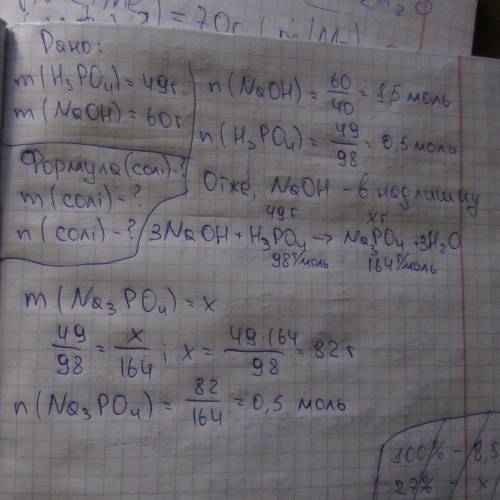 ) = 70г (
Дано:
m(H₃PO₄) = 49г
m(NaOH) = 60г
Формула(солі)-?
m(солі)-?
n(солі)-?
n(NaOH) = 60/40 = 1,5 моль
n(H₃PO₄) = 49/98 = 0,5 моль
Отже, NaOH - в надлишку
49г xг
3NaOH + H₃PO₄ → Na₃PO₄ + 3H₂O
98г/моль 164г/моль
m(Na₃PO₄) = x
49/98 = x/164; x = 49·164/98 = 82г
n(Na₃PO₄) = 82/164 = 0,5 моль
100% - 8,5
27% - x